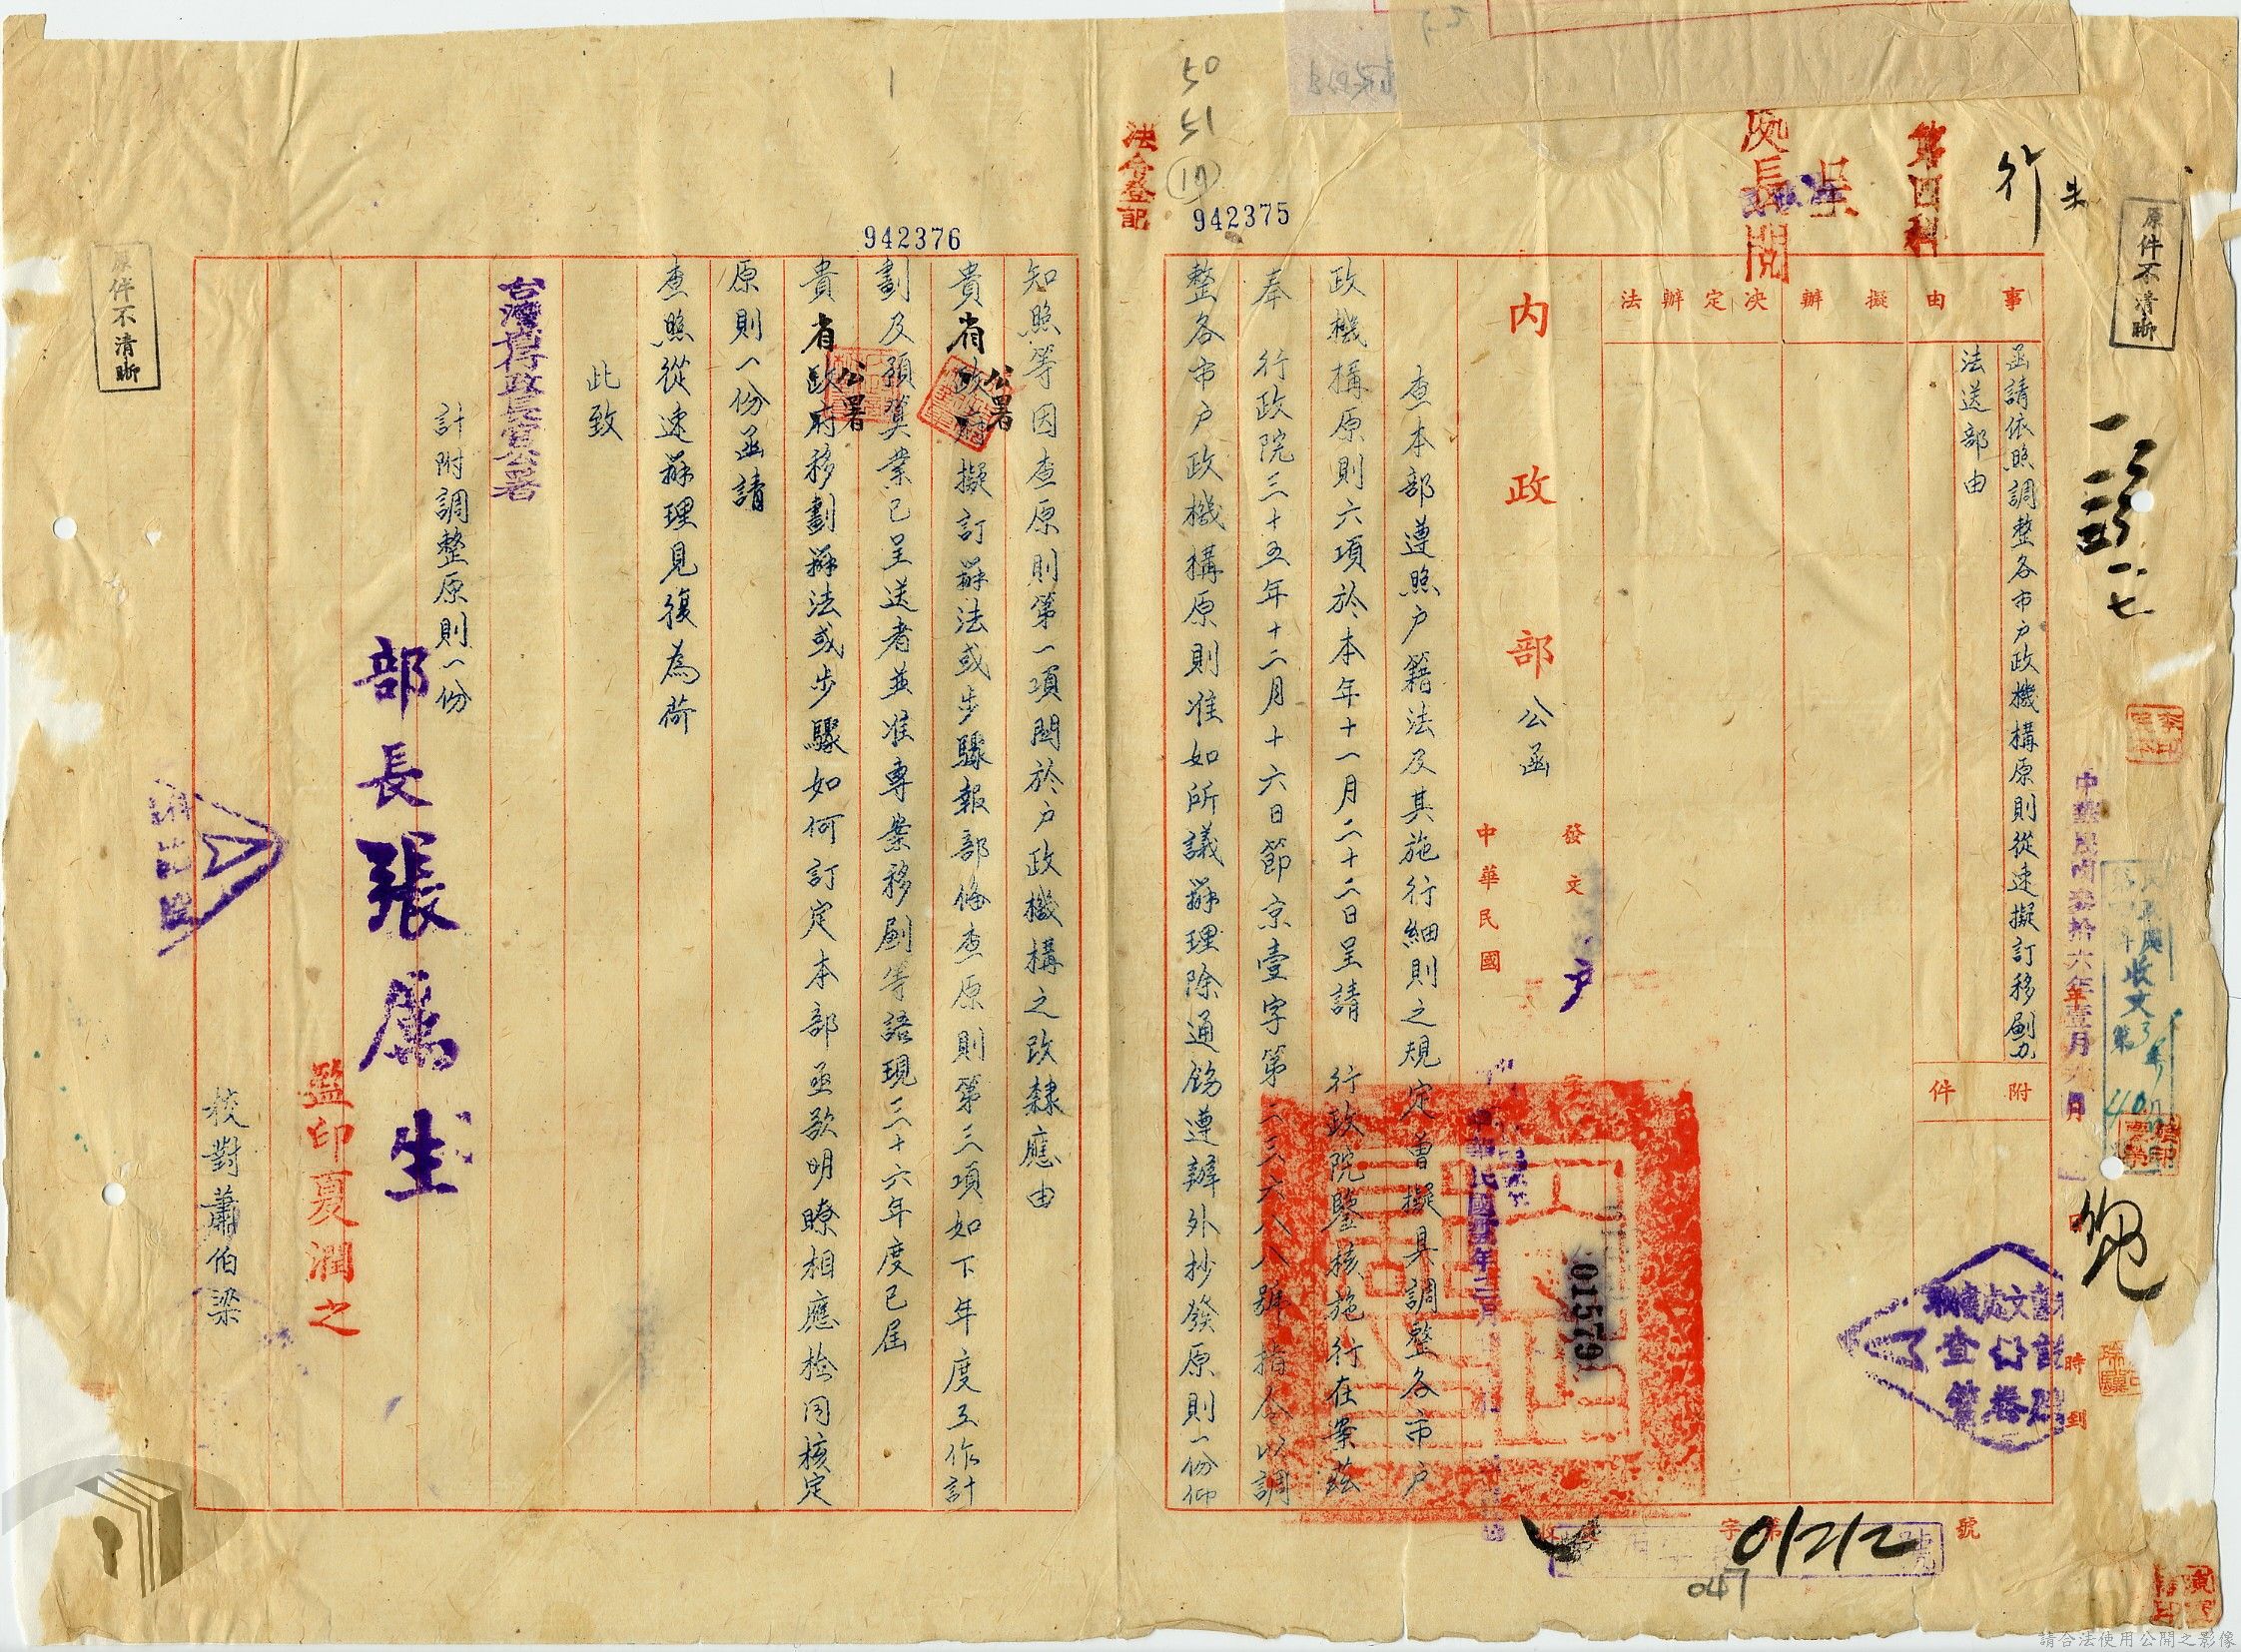 原件不清晰
朱
行
第四科
吳
處長閱
法令登記
50
51
942375
中華民國叁拾六年壹月
收文
時到
事由
函請依照調整各市戶政機構原則從速擬訂移劃辦
法送部由
附件
擬辦
決定辦法
內政部公函
發文
戶
字
015791
中華民國
查本部遵照戶籍法及其施行細則之規定曾擬具調整各市戶
政機構原則六項於本年十一月二十二日呈請 行政院鑒核施行在案茲
奉 行政院三十五年十二月十六日節京壹字第二三六八八號指令以調
整各市戶政機構原則准如所議辦理除通飭遵辦外抄發原則一份仰
號
字
01212
047
942376
知照等因查原則第一項關於戶政機構之改隸應由
貴省公署擬訂辦法或步驟報部備查原則第三項如下年度工作計
劃及預算業已呈送者並准專案移劃等語現三十六年度已屆
貴省公署移劃辦法或步驟如何訂定本部亟欲明瞭相應檢同核定
原則一份函請
查照從速辦理見復為荷
此致
台灣省行政長官公署
計附調整原則一份
部長張厲生
監印夏潤之
校對蕭伯梁
原件不清晰
請合法使用公開之影像